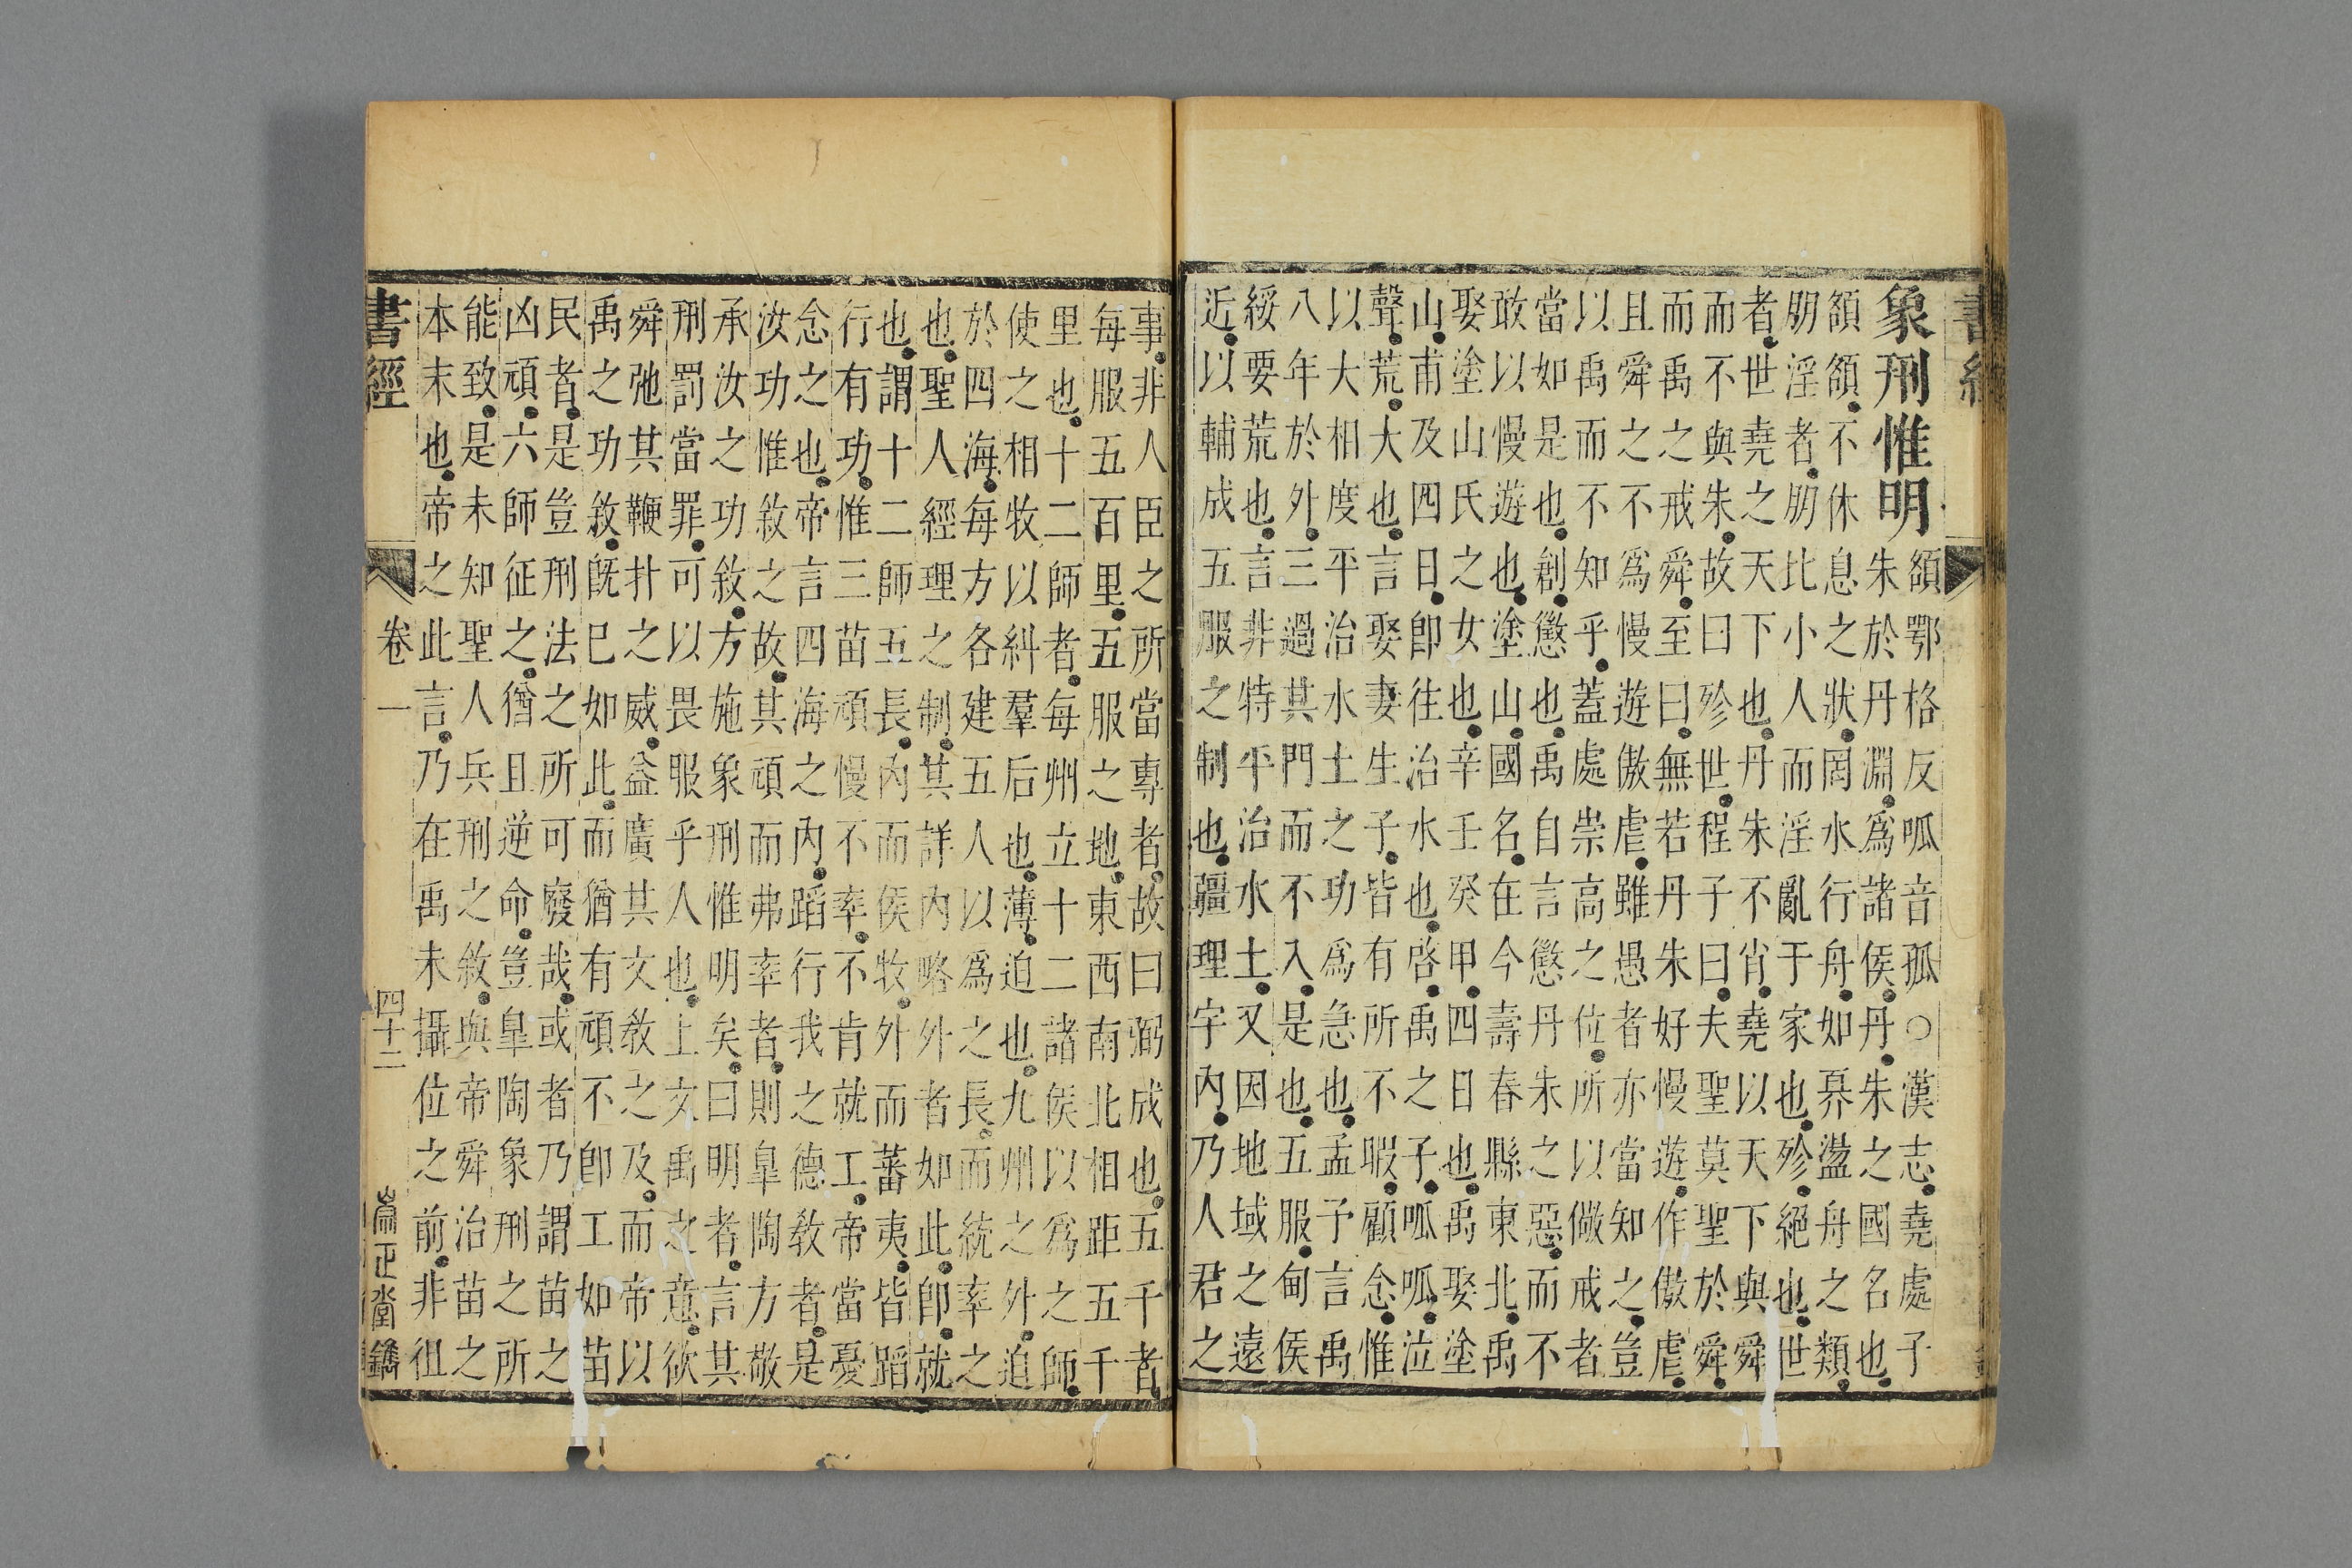 書經
象刑惟明
頟鄂格反呱音孤○漢志堯處子
朱於丹淵爲諸侯丹朱之國名也
頟頟不休息之狀罔水行舟如奡盪舟之類
朋淫者朋比小人而淫亂于家也殄絕也世
者世堯之天下也丹朱不肖堯以天下與舜
而不與朱故曰殄世程子曰夫聖莫聖於舜
而禹之戒舜至曰無若丹朱好慢遊作傲虐
且舜之不爲慢遊傲虐雖愚者亦當知之豈
以禹而不知乎蓋處崇高之位所以儆戒者
當如是也創懲也禹自言懲丹朱之惡而不
敢以慢遊也塗山國名在今壽春縣東北禹
娶塗山氏之女也辛壬癸甲四日也禹娶塗
山甫及四日卽往治水也啓禹之子呱呱泣
聲荒大也言娶妻生子皆有所不暇顧念惟
以大相度平治水土之功爲急也孟子言禹
八年於外三過其門而不入是也五服甸侯
綏要荒也言非特平治水土又因地域之遠
近以輔成五服之制也疆理宇內乃人君之
事非人臣之所當專者故曰弼成也五千者
每服五百里五服之地東西南北相距五千
里也十二師者每州立十二諸侯以爲之師
使之相牧以糾羣后也薄迫也九州之外迫
於四海每方各建五人以爲之長而統率之
也聖人經理之制其詳內略外者如此卽就
也謂十二師五長內而侯牧外而蕃夷皆蹈
行有功惟三苗頑慢不率不肯就工帝當憂
念之也帝言四海之內蹈行我之德教者是
汝功惟敘之故其頑而弗率者則皐陶方敬
承汝之功敘方施象刑惟明矣曰明者言其
刑罰當罪可以畏服乎人也上文禹之意欲
舜弛其鞭扑之威益廣其文教之及而帝以
禹之功敘旣已如此而猶有頑不卽工如苗
民者是豈刑法之所可廢哉或者乃謂苗之
凶頑六師征之猶且逆命豈皐陶象刑之所
能致是未知聖人兵刑之敘與帝舜治苗之
本末也帝之此言乃在禹未攝位之前非徂
書經 卷一 四十二 崇正堂鐫